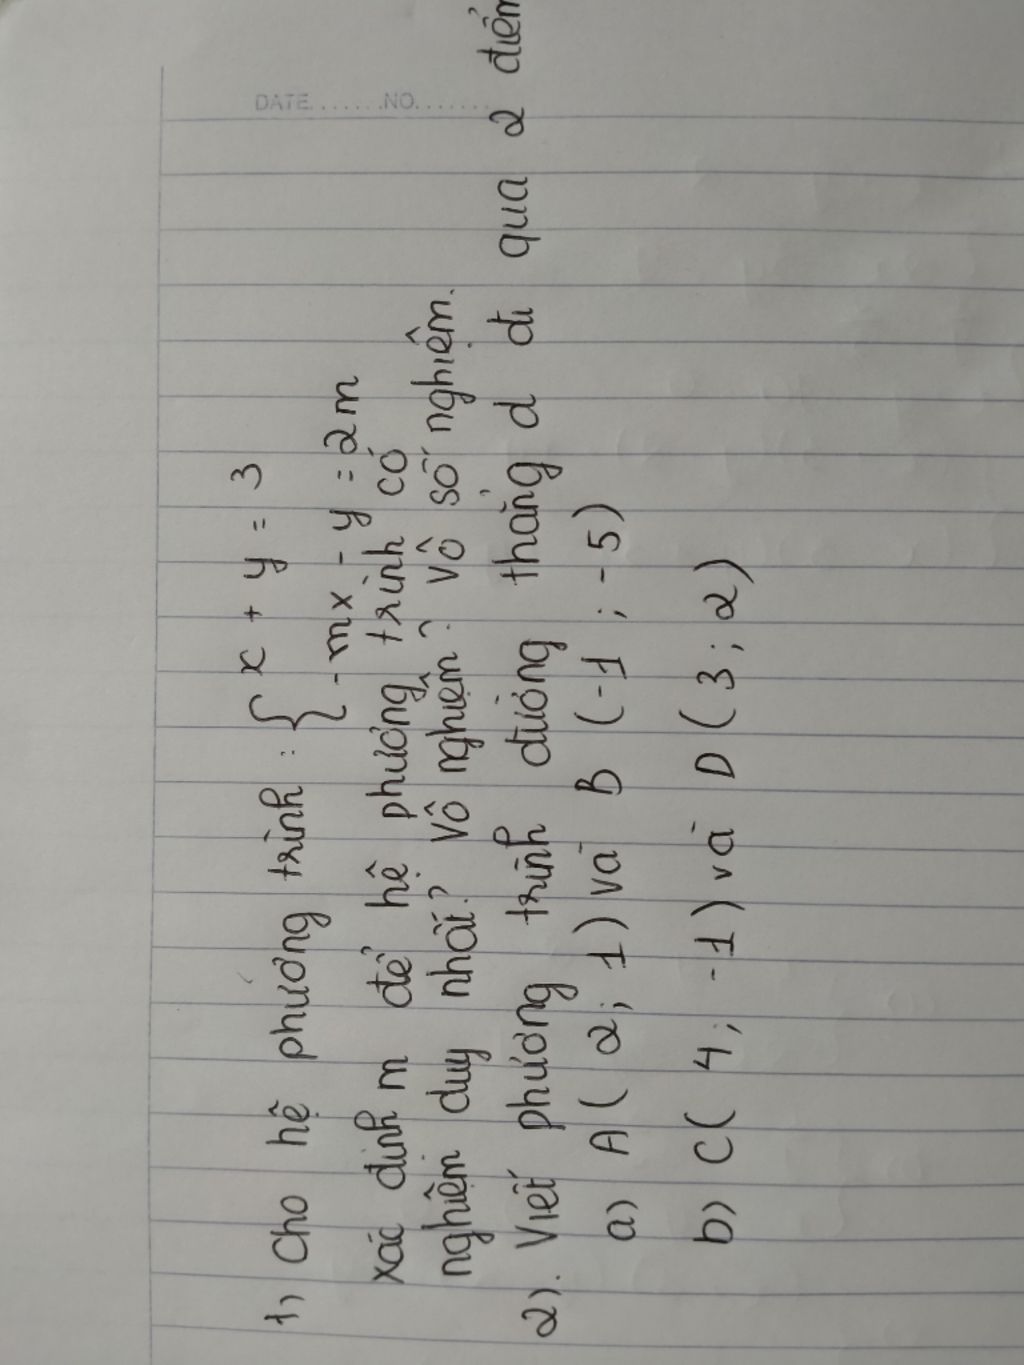 DATE.......NO.......
1) Cho hệ phương trình : { x + y = 3
-mx - y = 2m
xác định m để hệ phương trình có
nghiệm duy nhất? Vô nghiệm? vô số nghiệm.
2). Viết phương trình đường thẳng d đi qua 2 điểm
a) A( 2; 1) và B (-1 ; -5)
b) C( 4; -1) và D ( 3; 2)